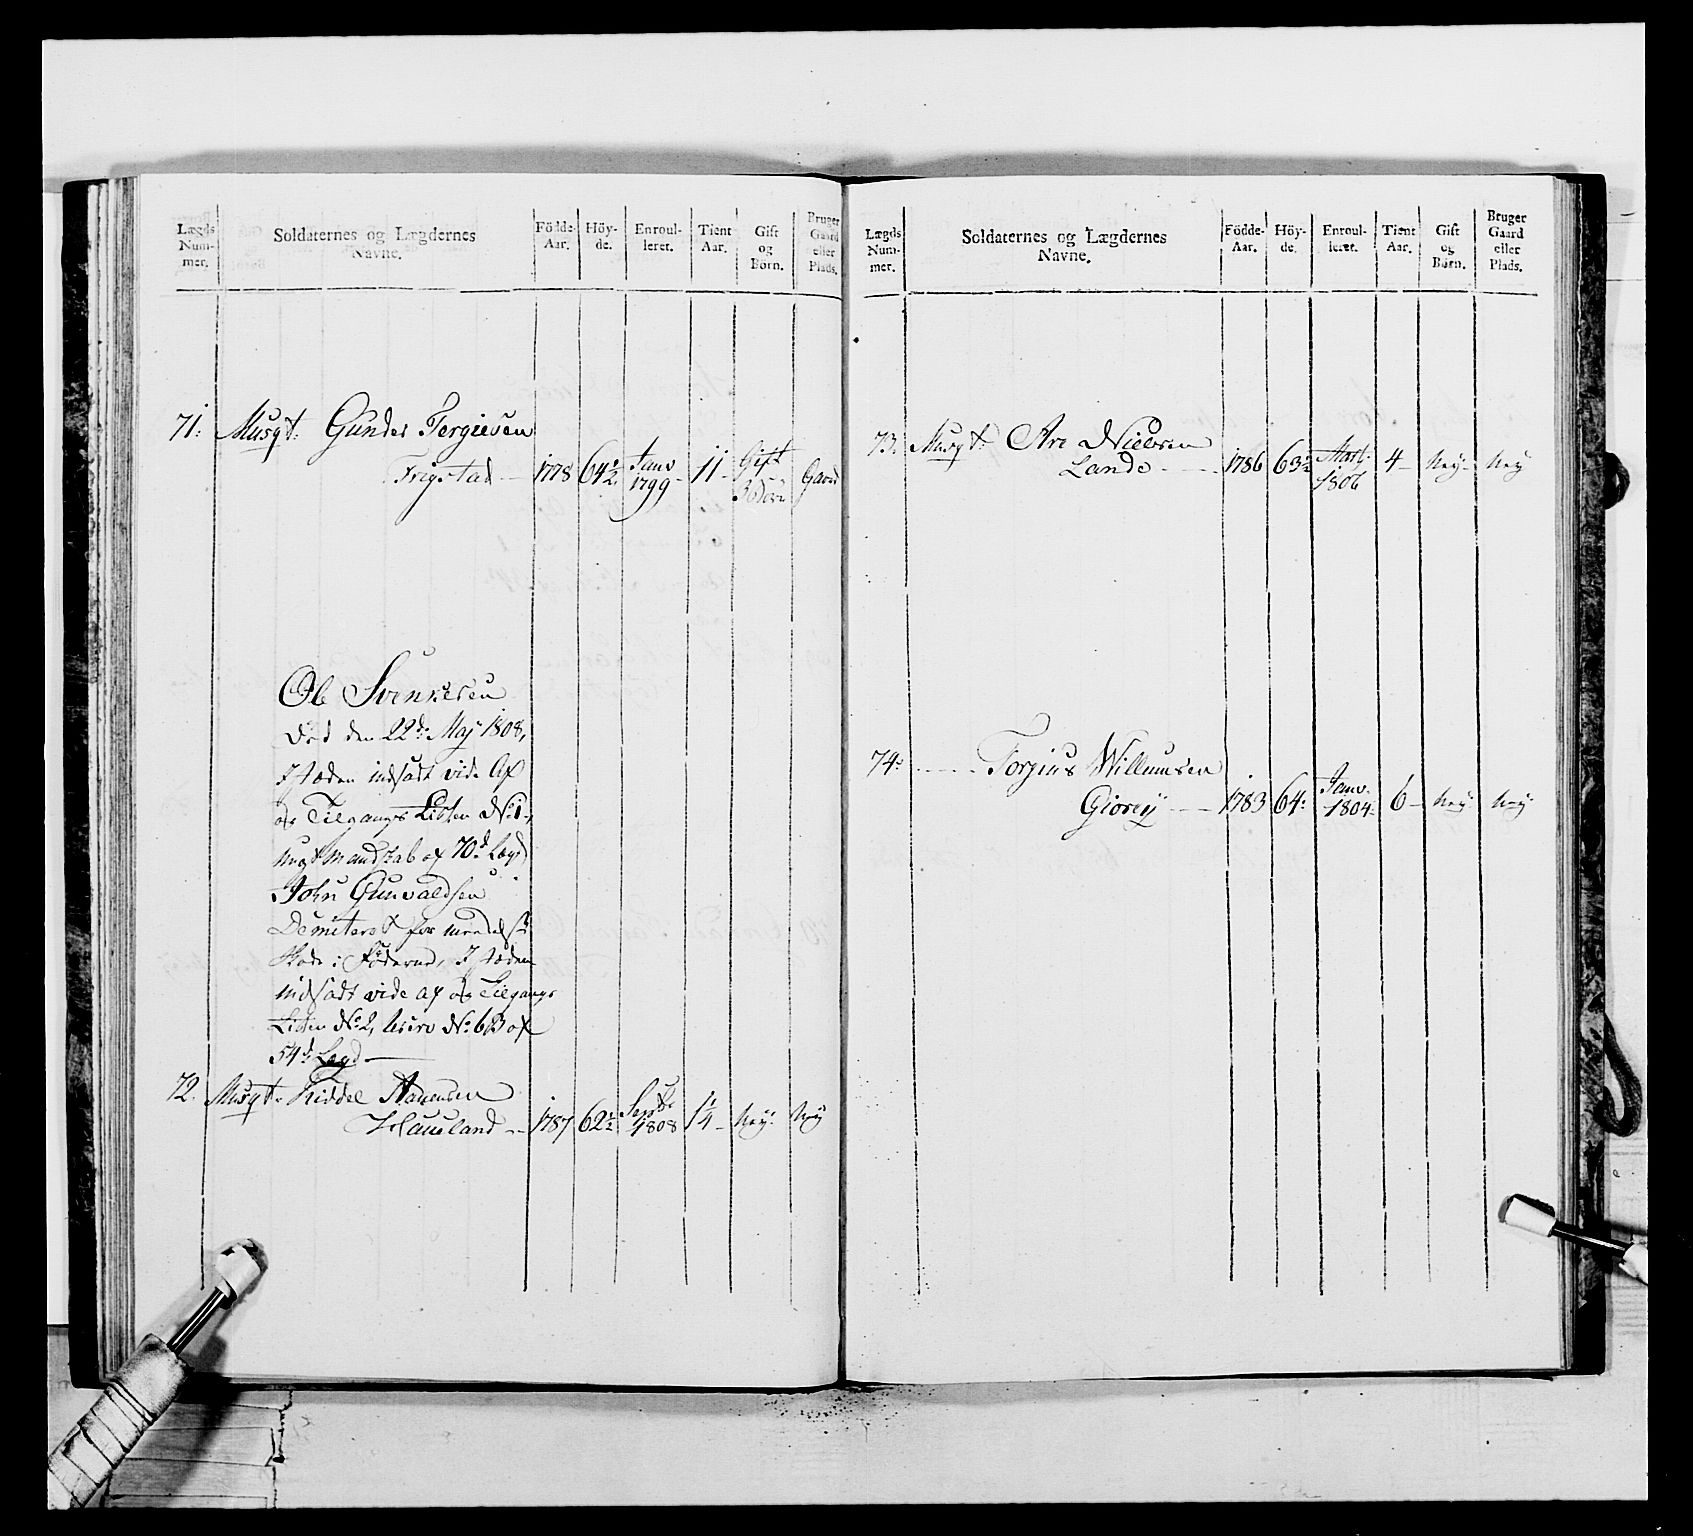 Lægds Num-mer.
Soldaternes og Lægdernes Navne.
Födde-Aar.
Höy-de.
Enroul-leret.
Tient Aar.
Gift og Börn.
Bruger Gaard eller Plads.
71. Musqt. Gunder Tergiesen
Frigstad 1778 64½ Janv 1799 11 Gift Gaard
Ole Svenkesen
Död den 22de Maj 1808,
I stæden indsadt vide Af
og Tilgangs Listen No 1,
Mandskab af 70de Lægd
John Gunvaldsen
Demiteret for
Skade i Födderne, I stæden
indsadt vide Af og Tilgangs
Listen No 2, No 63 af
54de Lægd
72. Musqt. Kiddel Aanensen
Haueland 1787 62½ Septbr 1808 1¼ Ney Ney
Lægds Num-mer.
Soldaternes og Lægdernes Navne.
Födde-Aar.
Höy-de.
Enroul-leret.
Tient Aar.
Gift og Börn.
Bruger Gaard eller Plads.
73. Musqt. Are Nielsen
Lande 1786 63½ 1806 4 Ney Ney
74. Torgius Willumsen
Giorey 1783 64 Janv. 1804 6 Ney Ney